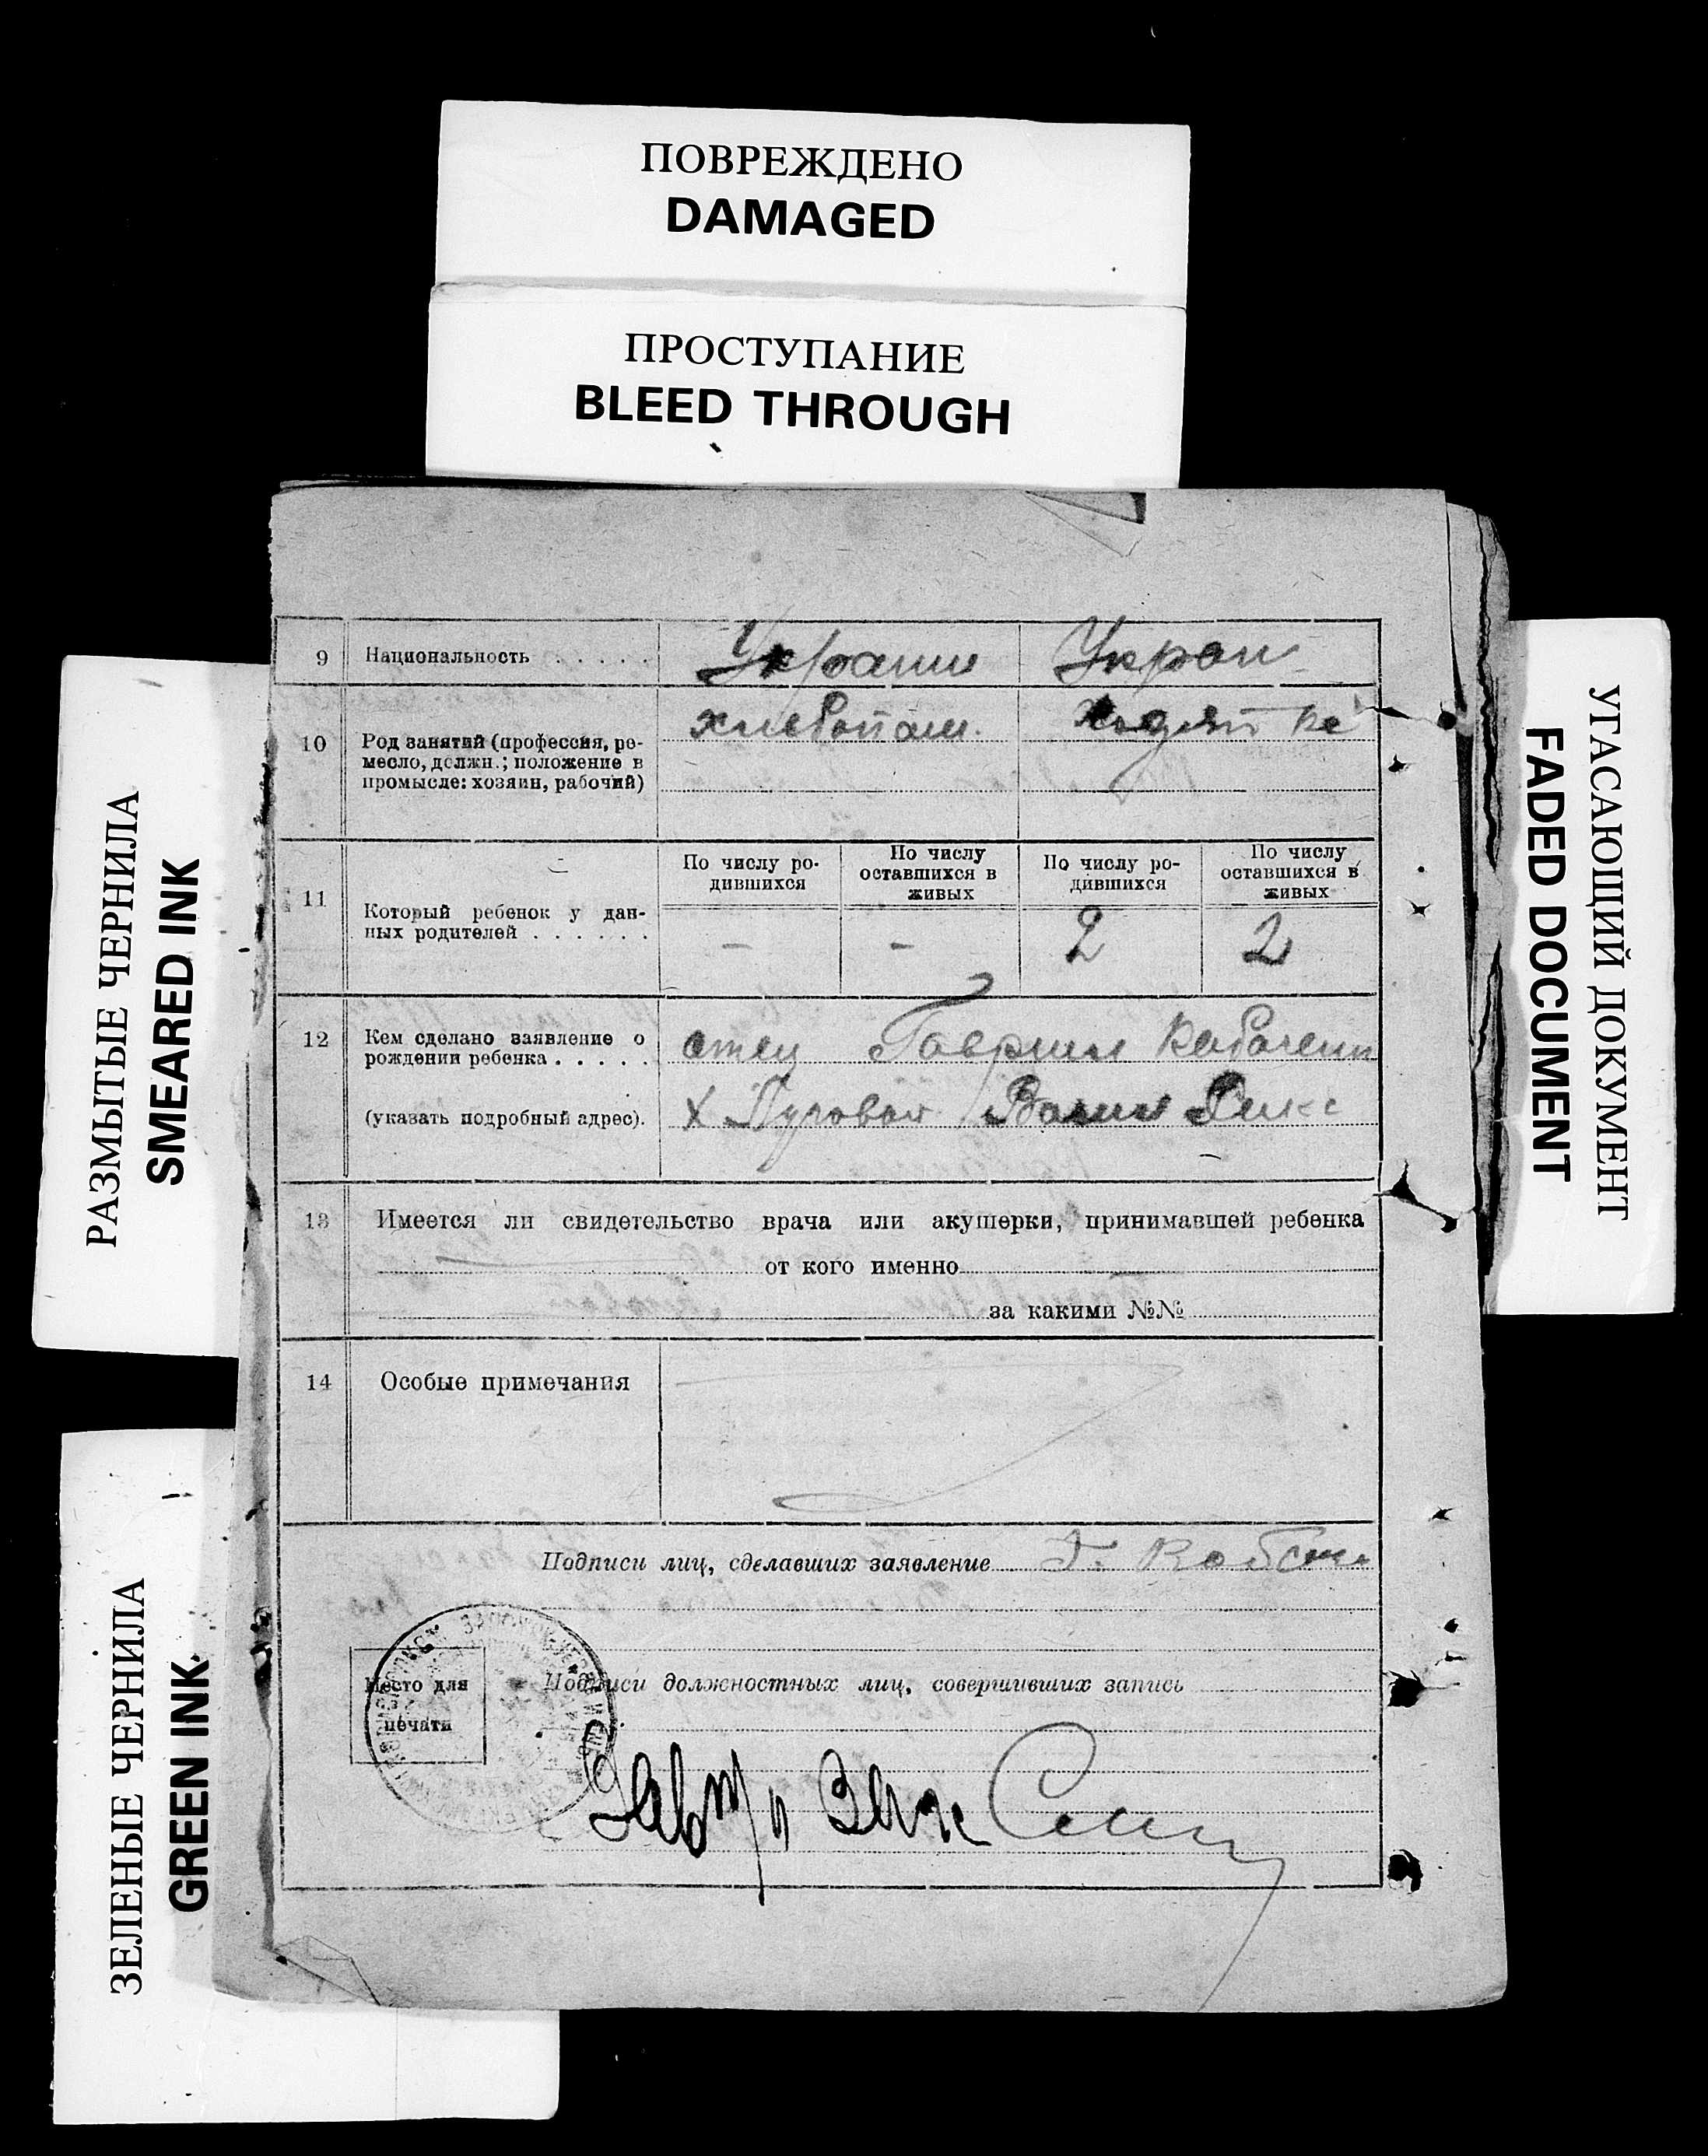 ПОВРЕЖДЕНО
DAMAGED
ПРОСТУПАНИЕ
BLEED THROUGH
РАЗМЫТЫЕ ЧЕРНИЛА
SMEARED INK
ЗЕЛЕНЫЕ ЧЕРНИЛА
GREEN INK
УГАСАЮЩИЙ ДОКУМЕНТ
FADED DOCUMENT
9 Национальность . . . . . Украини Украи
10 Род занятий (профессия, ре-
месло, должн.; положение в
промысле: хозяин, рабочий)
хлебопаш.
11 Который ребенок у дан-
ных родителей . . . . . .
По числу ро-
дившихся
По числу
оставшихся в
живых
По числу ро-
дившихся
По числу
оставшихся в
живых
- - 2 2
12 Кем сделано заявление о
рождении ребенка . . . . .
(указать подробный адрес).
отец Гаврил
х Луговой
13 Имеется ли свидетельство врача или акушерки, принимавшей ребенка
от кого именно
за какими №№
14 Особые примечания
Подписи лиц, сделавших заявление Г.
Место для
печати
Подписи должностных лиц, совершивших запись